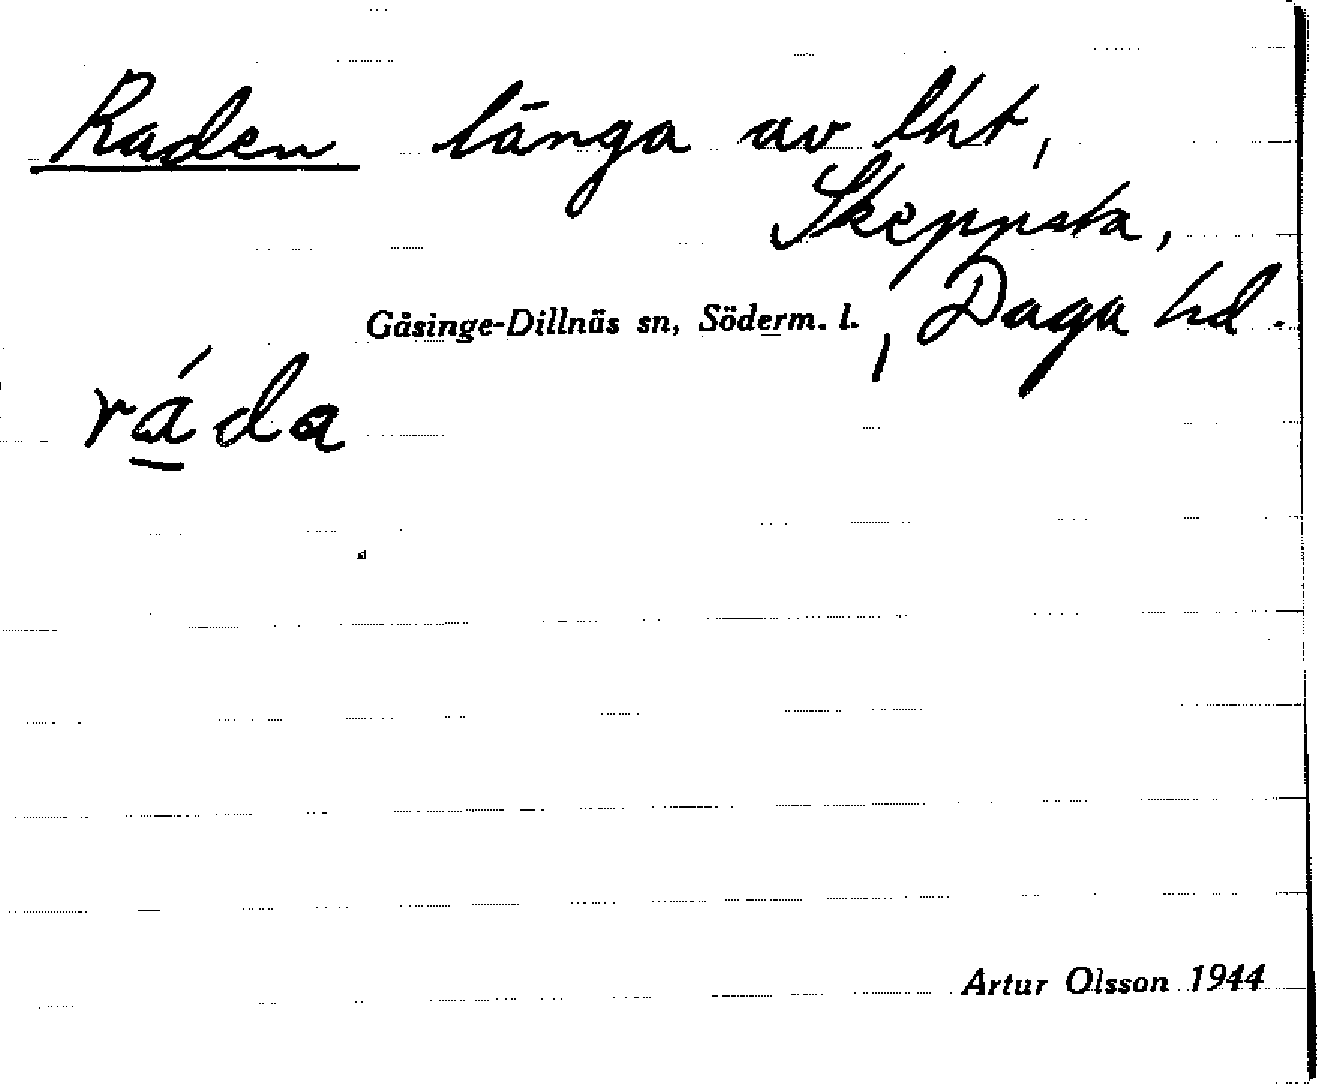 Raden länga av lht,
Skeppsta,
Gåsinge-Dillnäs sn, Söderm. l., Daga hd.
ráda
Artur Olsson 1944